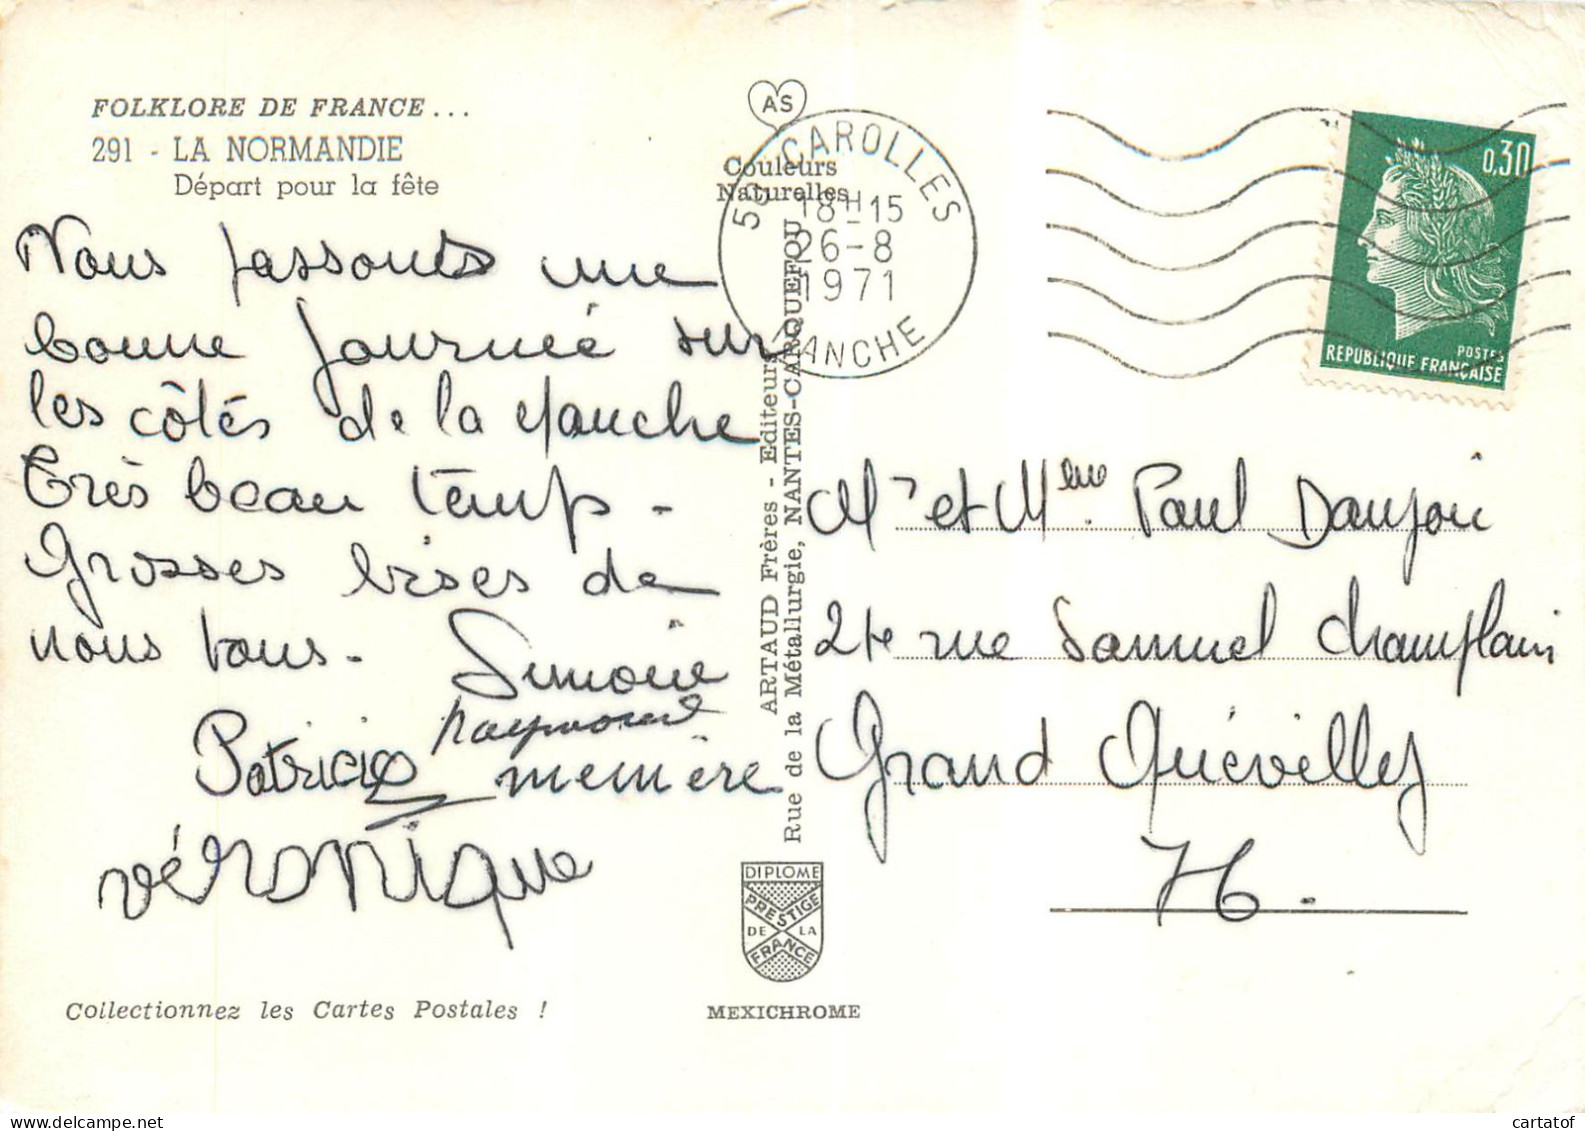 FOLKLORE DE FRANCE...
291 - LA NORMANDIE
Départ pour la fête
Nous passons une
bonne journée sur
les côtés de la Manche
Très beau temps -
Grosses bises de
nous tous -
Simone
Raymond
Patricia memère
véronique
Collectionnez les Cartes Postales !
AS
Couleurs
Naturelles
ARTAUD Frères - Editeurs
Rue de la Métallurgie, NANTES-CARQUEFOU
DIPLOME
PRESTIGE
DE LA
FRANCE
MEXICHROME
50 CAROLLES
18H-15
26-8
1971
MANCHE
0,30
POSTES
REPUBLIQUE FRANÇAISE
Mr et Mme Paul
rue Samuel Champlain
Grand Quévilley
76.
cartatof